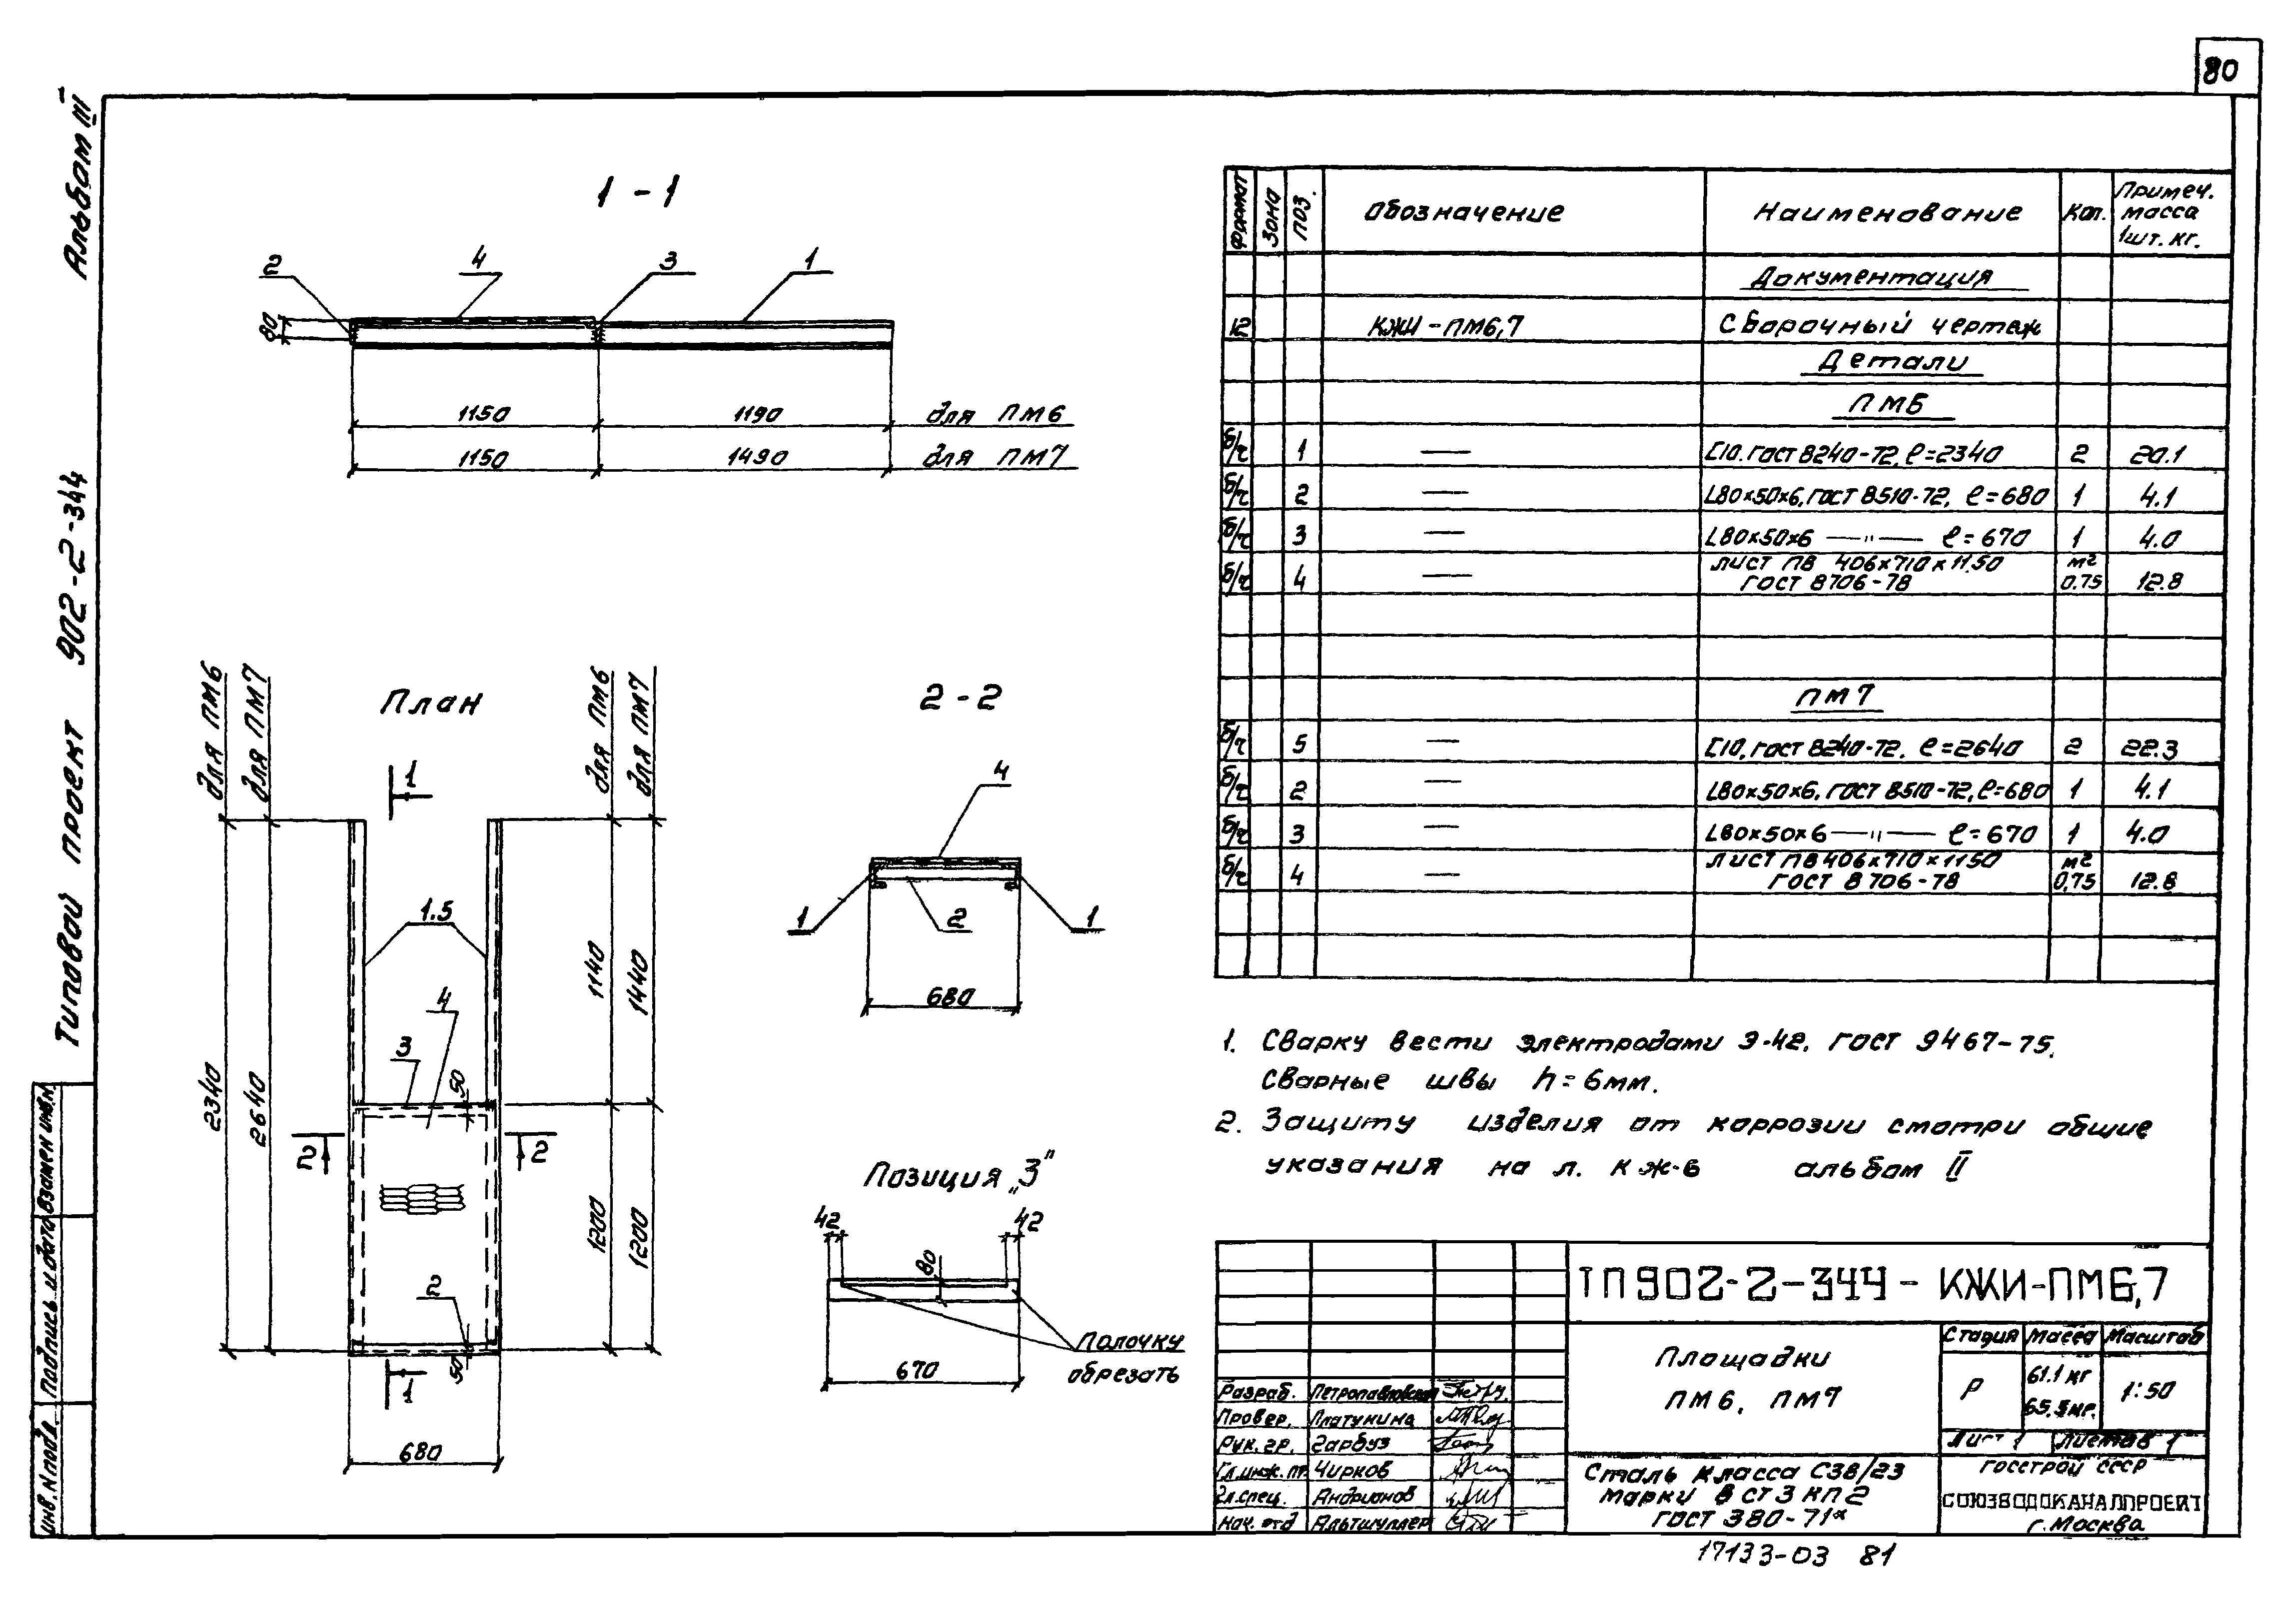 80
Альбом III
Типовой проект 902-2-344
1-1
2
4
3
1
80
1150
1190
для ПМ6
1150
1490
для ПМ7
План
для ПМ6
для ПМ7
для ПМ6
для ПМ7
1
1.5
4
3
50
2
2
2
50
1
2340
2640
1140
1440
1200
1200
680
2-2
4
1
2
1
680
Позиция „3"
42
42
80
670
Полочку
обрезать
Формат
Зона
Поз.
Обозначение
Наименование
Кол.
Примеч.
масса
1шт. кг.
Документация
12 КЖИ-ПМ6,7 Сборочный чертеж
Детали
ПМ6
б/ч 1 — [10. ГОСТ 8240-72, ℓ=2340 2 20.1
б/ч 2 — L80×50×6, ГОСТ 8510-72, ℓ=680 1 4.1
б/ч 3 — L80×50×6 —"— ℓ=670 1 4.0
б/ч 4 — лист ПВ 406×710×1150 м²
ГОСТ 8706-78 0.75 12.8
ПМ7
б/ч 5 — [10, ГОСТ 8240-72. ℓ=2640 2 22.3
б/ч 2 — L80×50×6, ГОСТ 8510-72, ℓ=680 1 4.1
б/ч 3 — L80×50×6 —"— ℓ=670 1 4.0
б/ч 4 — лист ПВ 406×710×1150 м²
ГОСТ 8706-78 0,75 12.8
1. Сварку вести электродами Э-42, ГОСТ 9467-75.
Сварные швы h=6мм.
2. Защиту изделия от коррозии смотри общие
указания на л. КЖ-6 альбом II
ТП902-2-344- КЖИ-ПМ6,7
Площадки
ПМ6, ПМ7
Стадия Масса Масштаб
Р
61.1 кг
65.5 кг.
1:50
Лист 1 Листов 1
Разраб. Петропавловская
Провер. Платунина
Рук. гр. Гарбуз
Гл.инж.пр. Чирков
Гл.спец. Андрианов
Нач. отд Альтшуллер
Сталь класса С38/23
марки ВСт3кп2
ГОСТ 380-71*
Госстрой СССР
СОЮЗВОДОКАНАЛПРОЕКТ
г. Москва
17133-03 81
Взамен инв.N
Подпись и дата
Инв. N подл.